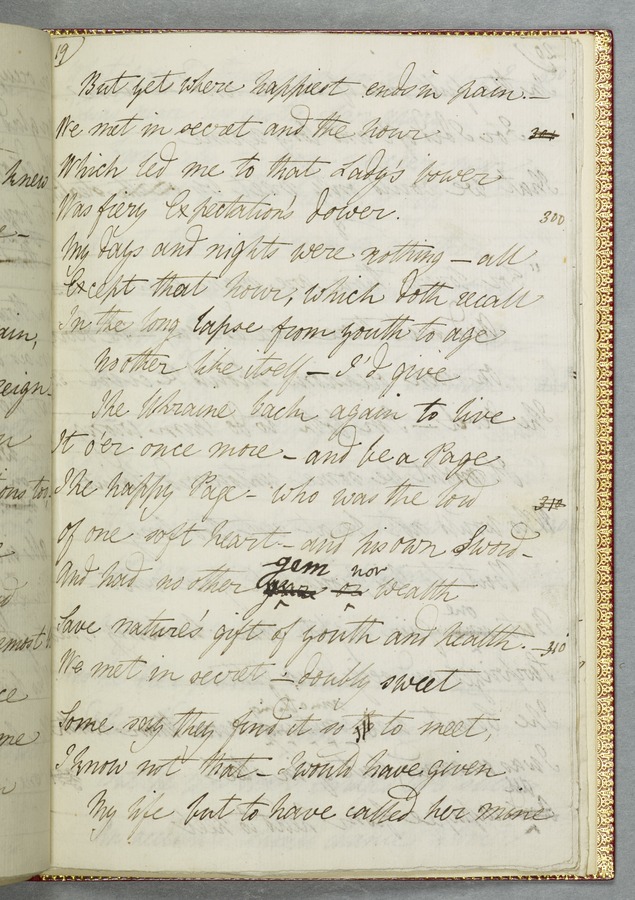 19
But yet where happiest ends in pain.—
We met in secret and the hour
Which led me to that Lady's bower
Was fiery Expectation's dower.
300
My days and nights were nothing — all
Except that hour, which doth recall
In the long lapse from youth to age
No other like itself — I'd give
The Ukraine back again to live
It o'er once more — and be a Page
The happy Page — who was the lord
of one soft heart — and his own sword —
And had no other gem nor wealth
Save nature's gift of youth and health. —
310
We met in secret — doubly sweet
Some say they find it so to meet,
I know not that — I would have given
My life but to have called her mine